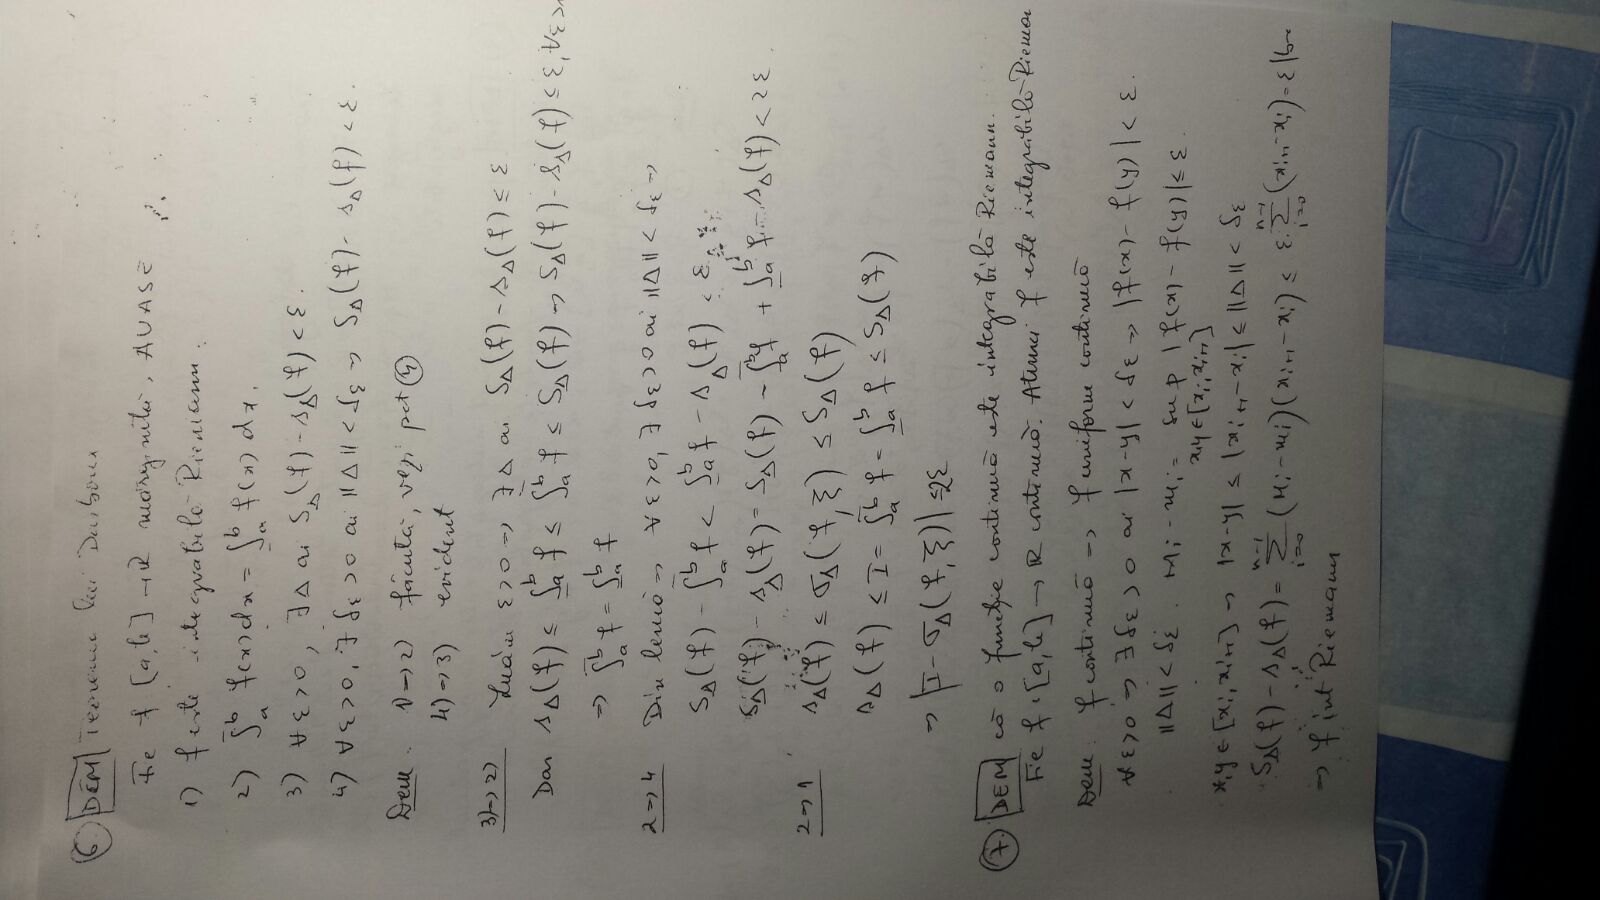 6. DEM Teorema lui Darboux
Fie f [a,b] → ℝ mărginită, AUASE
1) f este integrabilă Riemann.
2) ∫̅ₐᵇ f(x)dx = ∫̲ₐᵇ f(x) dx.
3) ∀ε>0, ∃Δ aî S_Δ(f) - s_Δ(f) < ε.
4) ∀ε>0, ∃ δ_ε >0 aî ||Δ|| < δ_ε ⇒ S_Δ(f) - s_Δ(f) < ε.
Dem. 1) → 2) făcută, vezi pct 4
4) → 3) evident
3) → 2) Luăm ε>0 ⇒ ∃ Δ aî S_Δ(f) - s_Δ(f) ≤ ε
Dar s_Δ(f) ≤ ∫̲ₐᵇ f ≤ ∫̅ₐᵇ f ≤ S_Δ(f) ⇒ S_Δ(f) - s_Δ(f) ≤ ε, ∀ε>
⇒ ∫̅ₐᵇ f = ∫̲ₐᵇ f
2 → 4 Din lemă ⇒ ∀ε>0, ∃ δ_ε>0 aî ||Δ|| < δ_ε ⇒
S_Δ(f) - ∫̅ₐᵇ f < ∫̲ₐᵇ f - s_Δ(f) < ε
S_Δ(f) - s_Δ(f) = S_Δ(f) - ∫̅ₐᵇ f + ∫̲ₐᵇ f - s_Δ(f) < 2ε
2 → 1 s_Δ(f) ≤ σ_Δ(f, ξ) ≤ S_Δ(f)
s_Δ(f) ≤ I = ∫̅ₐᵇ f = ∫̲ₐᵇ f ≤ S_Δ(f)
⇒ |I - σ_Δ(f, ξ)| ≤ 2ε
7. DEM că o funcție continuă este integrabilă Riemann.
Fie f: [a,b] → ℝ continuă. Atunci f este integrabilă Rieman
Dem. f continuă ⇒ f uniform continuă
∀ε>0 ⇒ ∃ δ_ε > 0 aî |x-y| < δ_ε ⇒ |f(x) - f(y)| < ε.
||Δ|| < δ_ε. M_i - m_i = sup |f(x) - f(y)| ≤ ε.
x,y ∈ [x_i, x_{i+1}]
x,y ∈ [x_i, x_{i+1}] ⇒ |x-y| ≤ |x_{i+1} - x_i| ≤ ||Δ|| < δ_ε
S_Δ(f) - s_Δ(f) = ∑_{i=0}^{n-1} (M_i - m_i)(x_{i+1} - x_i) ≤ ε·∑_{i=0}^{n-1} (x_{i+1} - x_i) = ε|b-
⇒ f int Riemann